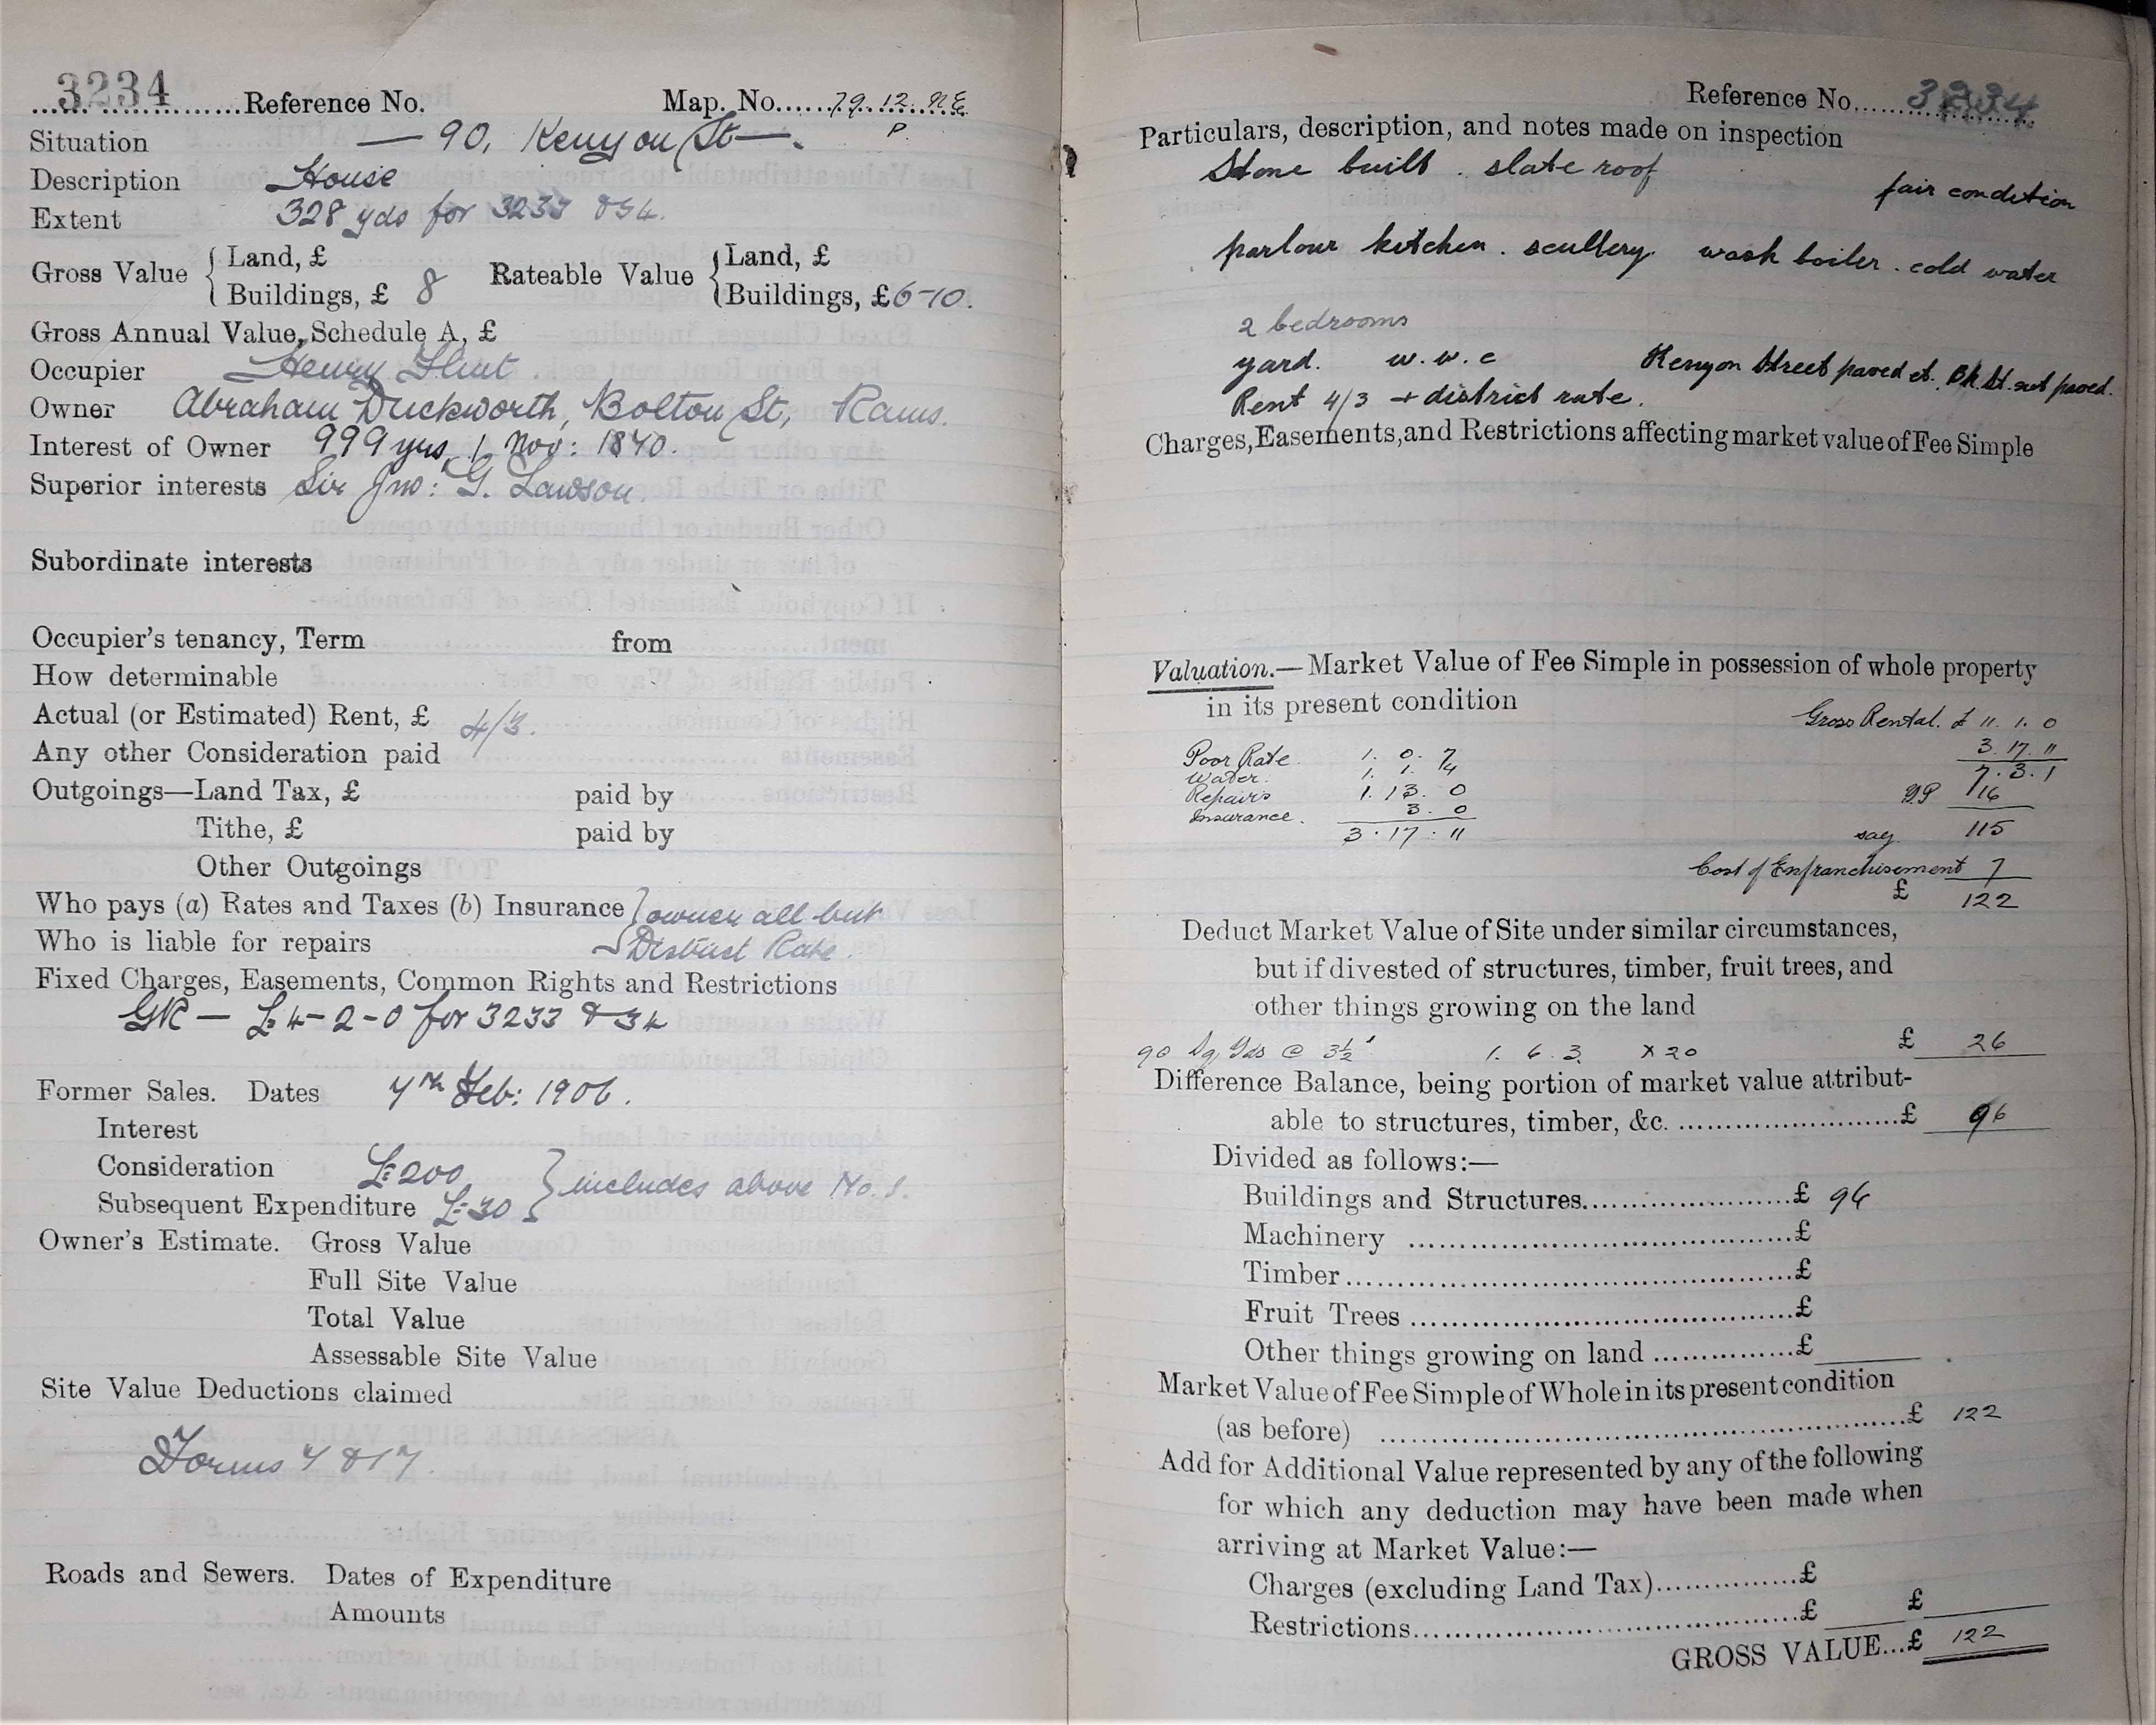 3234 Reference No. Map. No. 79.12.NE
P
Situation — 90, Kenyon St —.
Description House
Extent 328 yds for 3233 & 34.
Gross Value { Land, £ Rateable Value { Land, £
Buildings, £ 8 Buildings, £ 6-10.
Gross Annual Value, Schedule A, £
Occupier Henry Flint.
Owner Abraham Duckworth, Bolton St, Rams.
Interest of Owner 999 yrs, 1 Nov: 1840.
Superior interests Sir Jno: G. Lawson.
Subordinate interests
Occupier's tenancy, Term from
How determinable
Actual (or Estimated) Rent, £ 4/3.
Any other Consideration paid
Outgoings—Land Tax, £ paid by
Tithe, £ paid by
Other Outgoings
Who pays (a) Rates and Taxes (b) Insurance } owner all but
Who is liable for repairs District Rate.
Fixed Charges, Easements, Common Rights and Restrictions
GR — £4-2-0 for 3233 & 34
Former Sales. Dates 7th Feb: 1906.
Interest
Consideration £200 } includes above No.s.
Subsequent Expenditure £30
Owner's Estimate. Gross Value
Full Site Value
Total Value
Assessable Site Value
Site Value Deductions claimed
Forms 7 & 17.
Roads and Sewers. Dates of Expenditure
Amounts
Reference No. 3234
Particulars, description, and notes made on inspection
Stone built . slate roof fair condition
parlour kitchen . scullery. wash boiler . cold water
2 bedrooms
yard. w.w.c Kenyon Street paved et. Bk. St. not paved.
Rent 4/3 + district rate.
Charges, Easements, and Restrictions affecting market value of Fee Simple
Valuation.—Market Value of Fee Simple in possession of whole property
in its present condition
Gross Rental. £ 11. 1. 0
Poor Rate. 1. 0. 7 3. 17. 11
Water. 1. 1. 4 7. 3. 1
Repairs 1. 13. 0 YP 16
Insurance. 3. 0
3. 17. 11 say 115
Cost of Enfranchisement 7
£ 122
Deduct Market Value of Site under similar circumstances,
but if divested of structures, timber, fruit trees, and
other things growing on the land
90 Sq Yds @ 3½' 1. 6. 3. x 20 £ 26
Difference Balance, being portion of market value attribut-
able to structures, timber, &c. £ 96
Divided as follows:—
Buildings and Structures £ 96
Machinery £
Timber £
Fruit Trees £
Other things growing on land £
Market Value of Fee Simple of Whole in its present condition
(as before) £ 122
Add for Additional Value represented by any of the following
for which any deduction may have been made when
arriving at Market Value:—
Charges (excluding Land Tax) £
Restrictions £ £
GROSS VALUE...£ 122